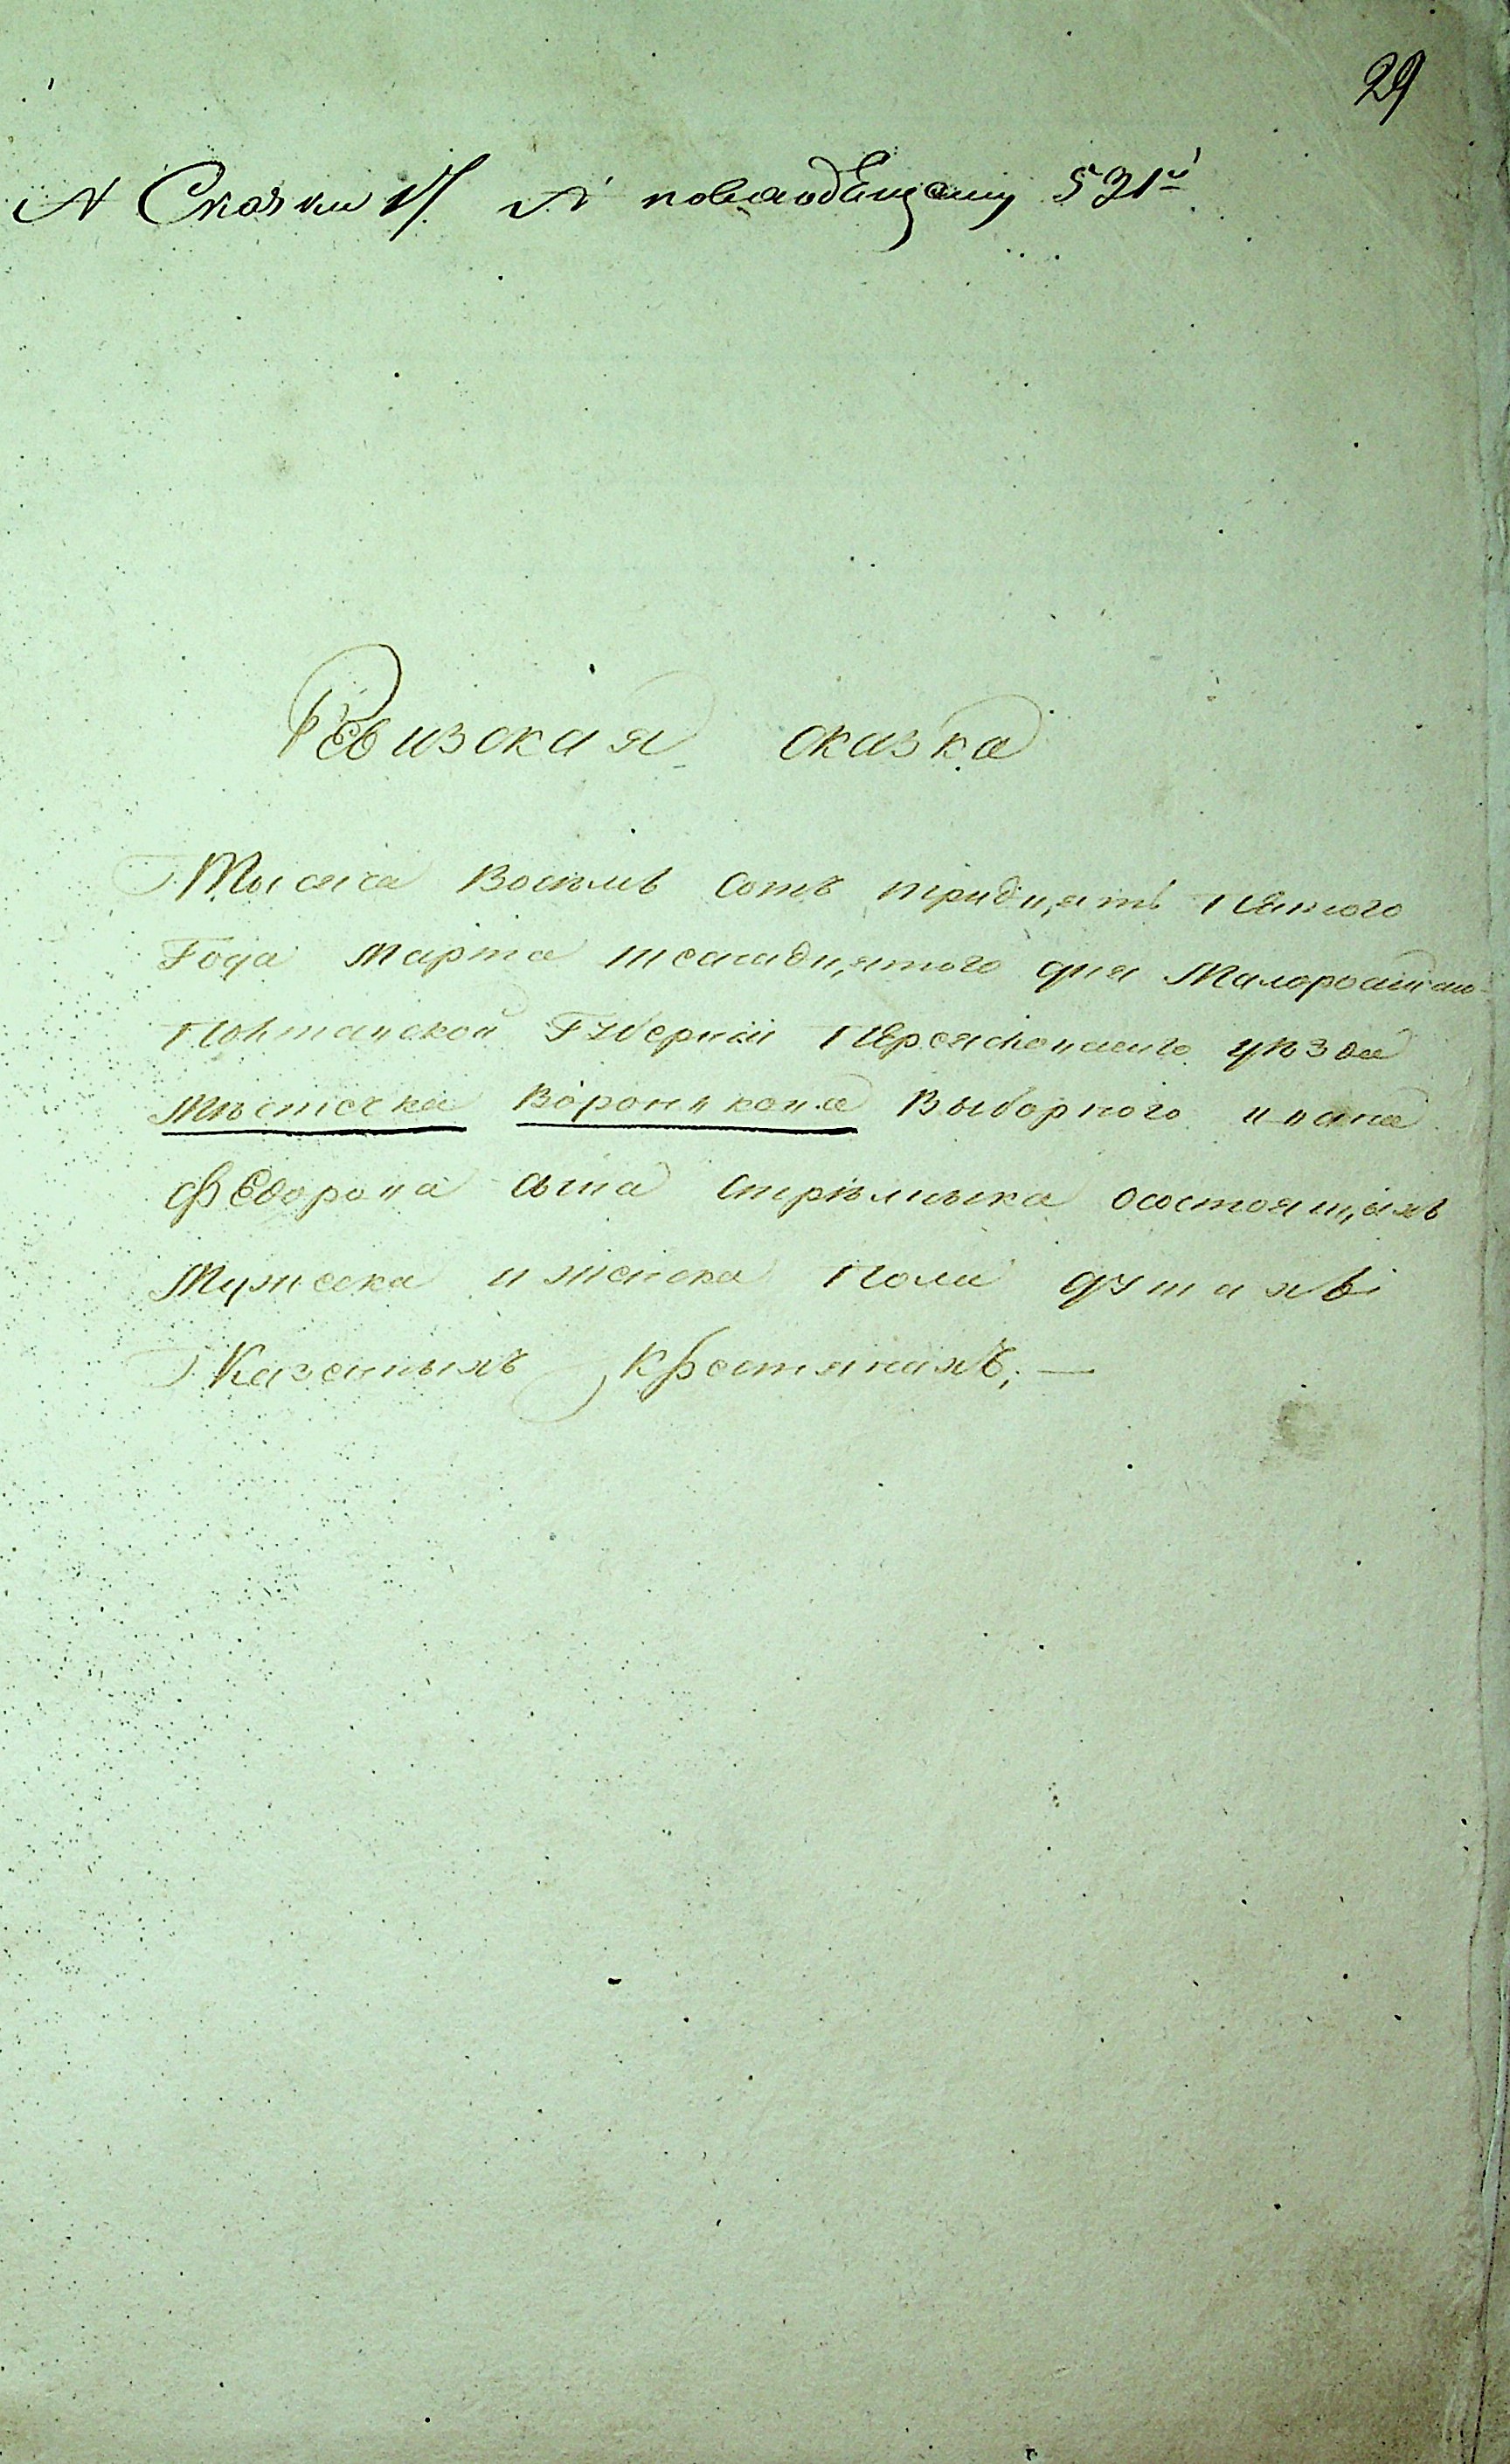 29
№ Сказки 17 № по владѣющему 531й
Ревизская сказка
Тысяча восемь сотъ тридцять Пятого
Года марта шеснадцятого дня Малороссийско
Полтавской Губерніи Переяславского уѣзда
Мѣстечка Воронкова Выборного Ивана
Федорова сына Стрѣльника осостоящихъ
Мужеска и женска Пола душахъ
Казенныхъ Крестянахъ. —